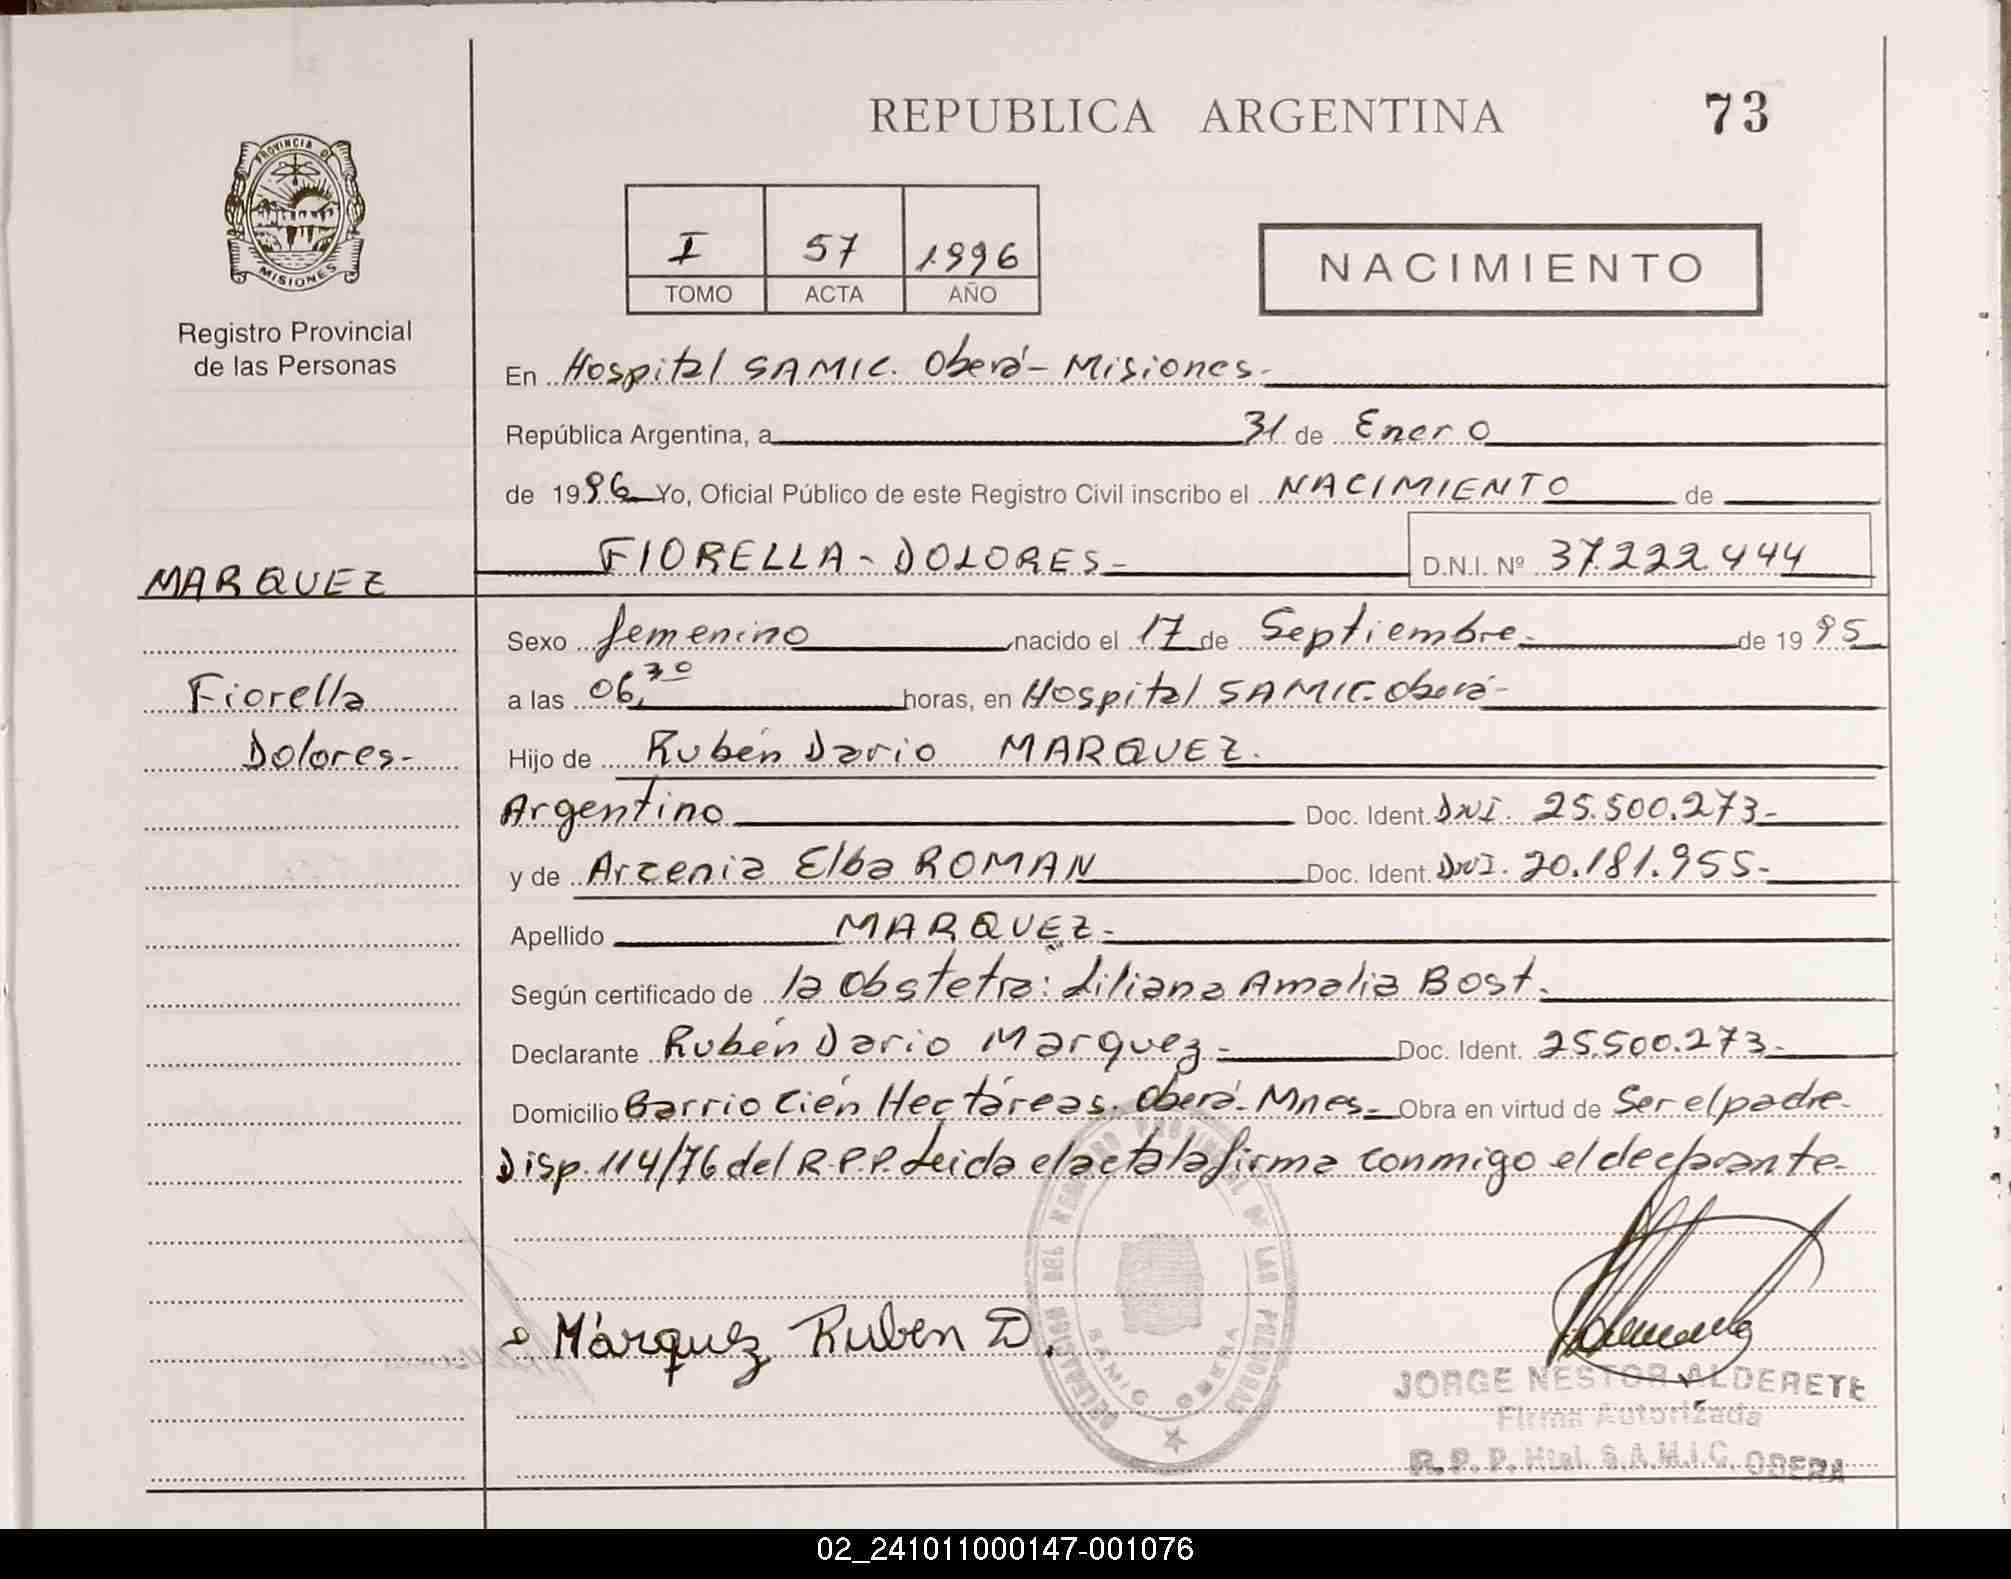 REPUBLICA ARGENTINA
73
PROVINCIA DE
MISIONES
Registro Provincial
de las Personas
I 57 1996
TOMO ACTA AÑO
NACIMIENTO
En Hospital SAMIC. Oberá - Misiones.-
República Argentina, a 31 de Enero
de 1996 Yo, Oficial Público de este Registro Civil inscribo el NACIMIENTO de
MARQUEZ
FIORELLA - DOLORES - D.N.I. Nº 37.222.444
Sexo femenino nacido el 17 de Septiembre - de 1995
Fiorella
a las 06,30 horas, en Hospital SAMIC. Oberá -
Dolores -
Hijo de Rubén Dario MARQUEZ.
Argentino Doc. Ident. DNI. 25.500.273 -
y de Arcenia Elba ROMAN Doc. Ident. DNI. 20.181.955 -
Apellido MARQUEZ -
Según certificado de la Obstetra: Liliana Amalia Bost.
Declarante Rubén Dario Marquez - Doc. Ident. 25.500.273 -
Domicilio Barrio Cién Hectáreas. Oberá - Mnes - Obra en virtud de Ser el padre -
Disp. 114/76 del R.P.P. Leida el acta la firma conmigo el declarante -
Márquez Ruben D.
DELEGACION DEL REGISTRO PROVINCIAL DE LAS PERSONAS
SAMIC OBERA
JORGE NESTOR ALDERETE
Firma Autorizada
R. P. P. Htal. S.A.M.I.C. OBERA
02_241011000147-001076